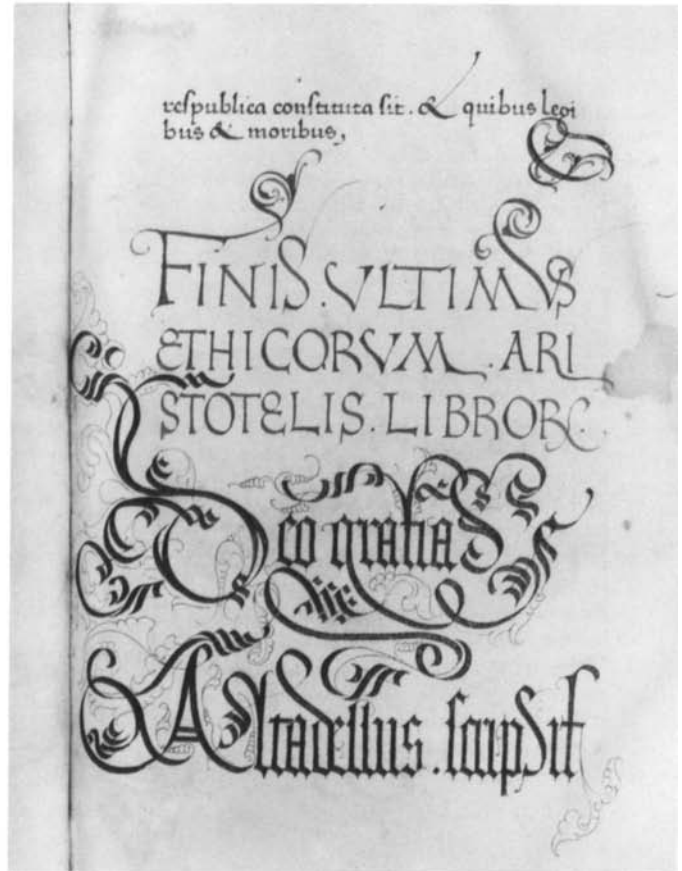 respublica constituta sit. & quibus legi
bus & moribus,
FINIS. VLTIMVS
ETHICORVM. ARI
STOTELIS. LIBRORꝜ.
Deo gratias
Altadellus. scripsit